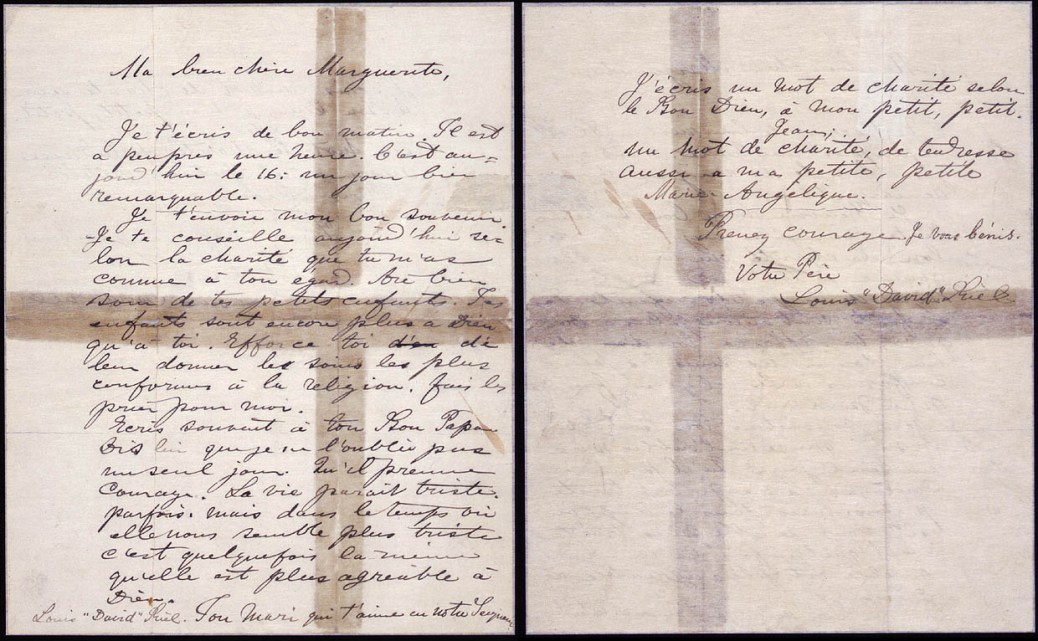 Ma bien chère Marguerite,
Je t'écris de bon matin. Il est
a peuprès une heure. C'est au=
jourd'hui le 16: un jour bien
remarquable.
Je t'envoie mon bon souvenir
Je te conseille aujourd'hui se=
lon la charité que tu m'as
comme à ton égard. Aie bien
soin de tes petits enfants. Tes
enfants sont encore plus a Dieu
qu'à toi. Efforce toi de
leur donner les soins les plus
conformes à la religion. fais les
prier pour moi.
Ecris souvent à ton Bon Papa
Dis lui que je ne l'oublie pas
un seul jour. Qu'il prenne
Courage. La vie parait triste
parfois. mais dans le temps où
elle nous semble plus triste
c'est quelquefois la même
qu'elle est plus agréable à
Dieu.
Louis "David" Riel. Ton Mari qui t'aime en notre Seigneur
J'écris un mot de charité selon
le Bon Dieu, à mon petit, petit.
Jean;
un mot de charité, de tendresse
aussi a ma petite, petite
Marie Angélique.
Prenez courage. Je vous bénis.
Votre Père
Louis "David" Riel